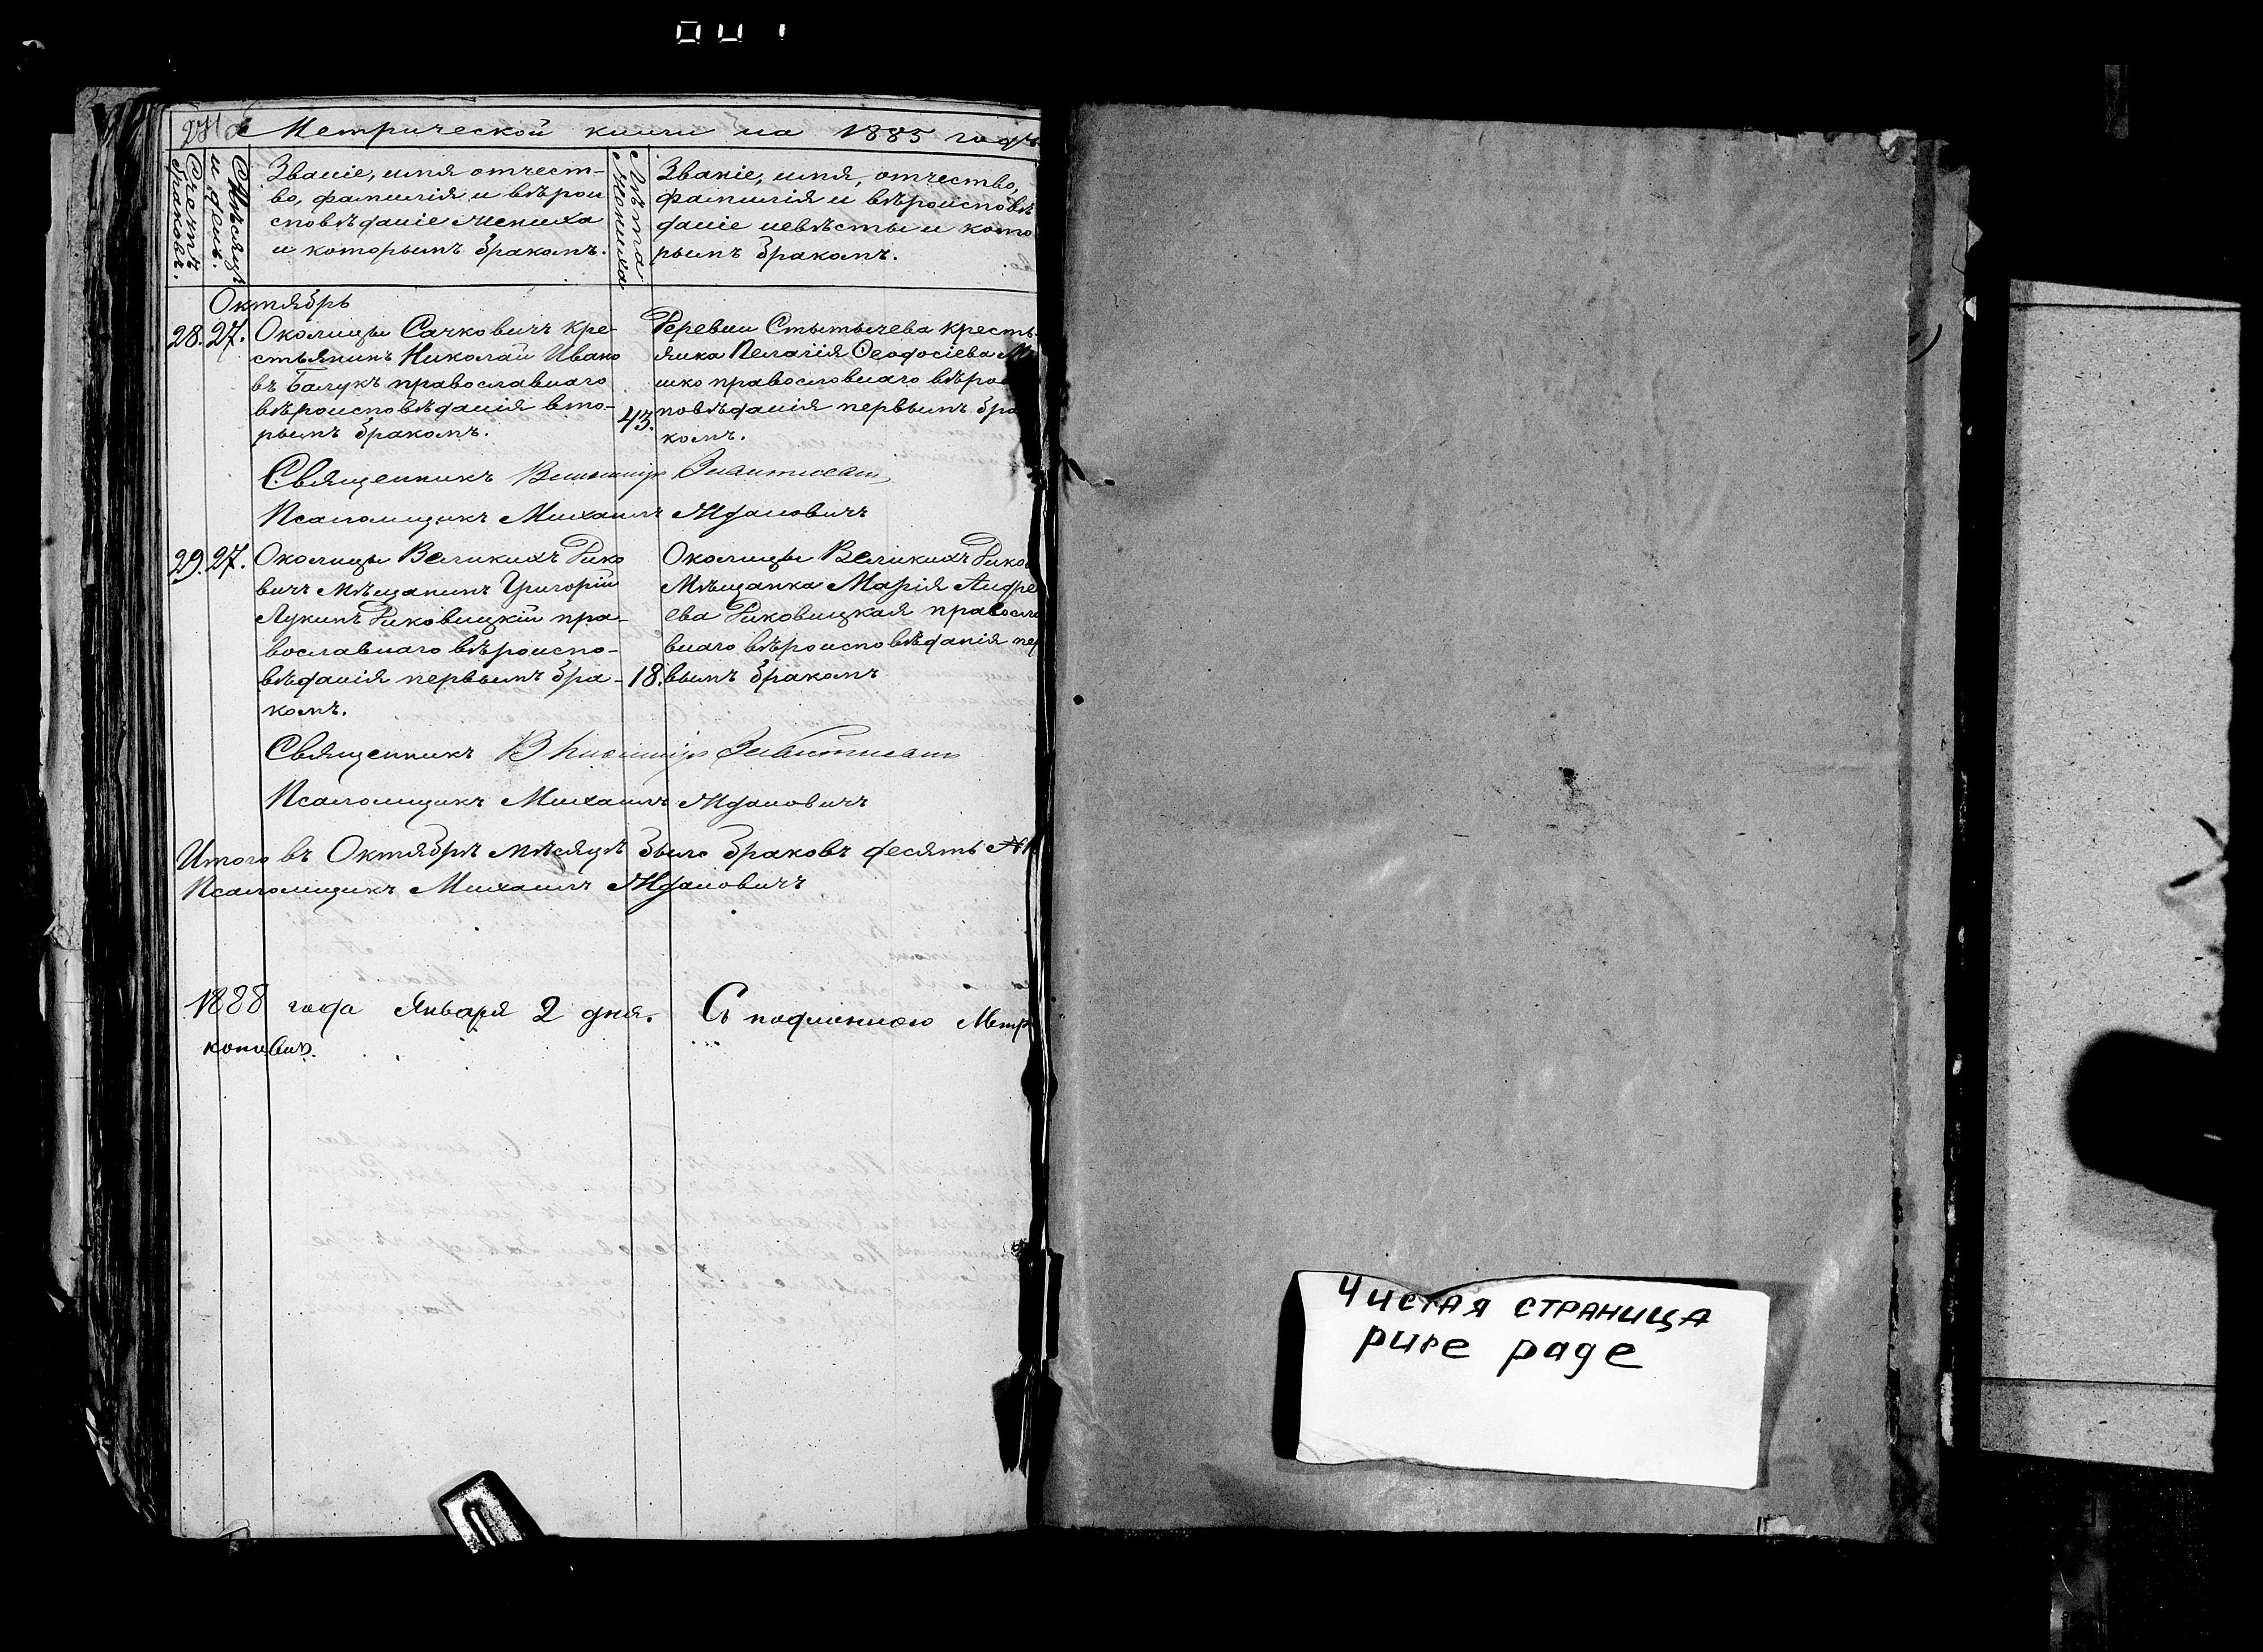 Метрической книги на 1885 годъ
Счетъ браковъ.
Мѣсяцъ и день.
Званіе, имя отчест-
во, фамилія и вѣрои
сповѣданіе жениха
и которымъ бракомъ.
Лѣта Жениха
Званіе, имя, отчество,
фамилія и вѣроисповѣ
даніе невѣсты и кото
рымъ бракомъ.
Октябрь
28. 27. Околицы Сачковичъ кре-
стьянинъ Николай Ивано
въ Балукъ православнаго
вѣроисповѣданія вто-
рымъ бракомъ.
43.
Деревни Стытычева кресть-
янка Пелагія Ѳеодосіева
шко православнаго вѣрои
повѣданія первымъ бра
комъ.
Священникъ
Псаломщикъ Михаилъ Ждановичъ
29. 27. Околицы Великихъ Дико
вичъ мѣщанинъ Григорій
Лукинъ Диковицкій пра-
вославнаго вѣроиспо-
вѣданія первымъ бра-
комъ.
18.
Околицы Великихъ Дико
Мѣщанка Марія Андре
ева Диковицкая правосла
внаго вѣроисповѣданія пер
вымъ бракомъ
Священникъ
Псаломщикъ Михаилъ Ждановичъ
Итого въ Октябрѣ мѣсяцѣ было браковъ десять
Псаломщикъ Михаилъ Ждановичъ
1888 года Января 2 дня. Съ подлинною Метр
Чистая страница
pure page